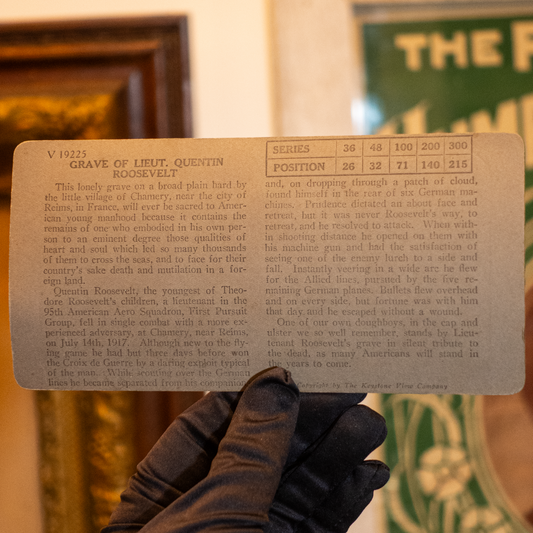 THE
V 19225
GRAVE OF LIEUT. QUENTIN
ROOSEVELT
This lonely grave on a broad plain hard by
the little village of Chamery, near the city of
Reims, in France, will ever be sacred to Amer-
ican young manhood because it contains the
remains of one who embodied in his own per-
son to an eminent degree those qualities of
heart and soul which led so many thousands
of them to cross the seas, and to face for their
country's sake death and mutilation in a for-
eign land.
Quentin Roosevelt, the youngest of Theo-
dore Roosevelt's children, a lieutenant in the
95th American Aero Squadron, First Pursuit
Group, fell in single combat with a more ex-
perienced adversary, at Chamery, near Reims,
on July 14th, 1917. Although new to the fly-
ing game he had but three days before won
the Croix de Guerre by a daring exploit typical
of the man. While scouting over the German
lines he became separated from his companions
SERIES 36 48 100 200 300
POSITION 26 32 71 140 215
and, on dropping through a patch of cloud,
found himself in the rear of six German ma-
chines. Prudence dictated an about face and
retreat, but it was never Roosevelt's way, to
retreat, and he resolved to attack. When with-
in shooting distance he opened on them with
his machine gun and had the satisfaction of
seeing one of the enemy lurch to a side and
fall. Instantly veering in a wide arc he flew
for the Allied lines, pursued by the five re-
maining German planes. Bullets flew overhead
and on every side, but fortune was with him
that day and he escaped without a wound.
One of our own doughboys, in the cap and
ulster we so well remember, stands by Lieu-
tenant Roosevelt's grave in silent tribute to
the dead, as many Americans will stand in
the years to come.
Copyright by The Keystone View Company